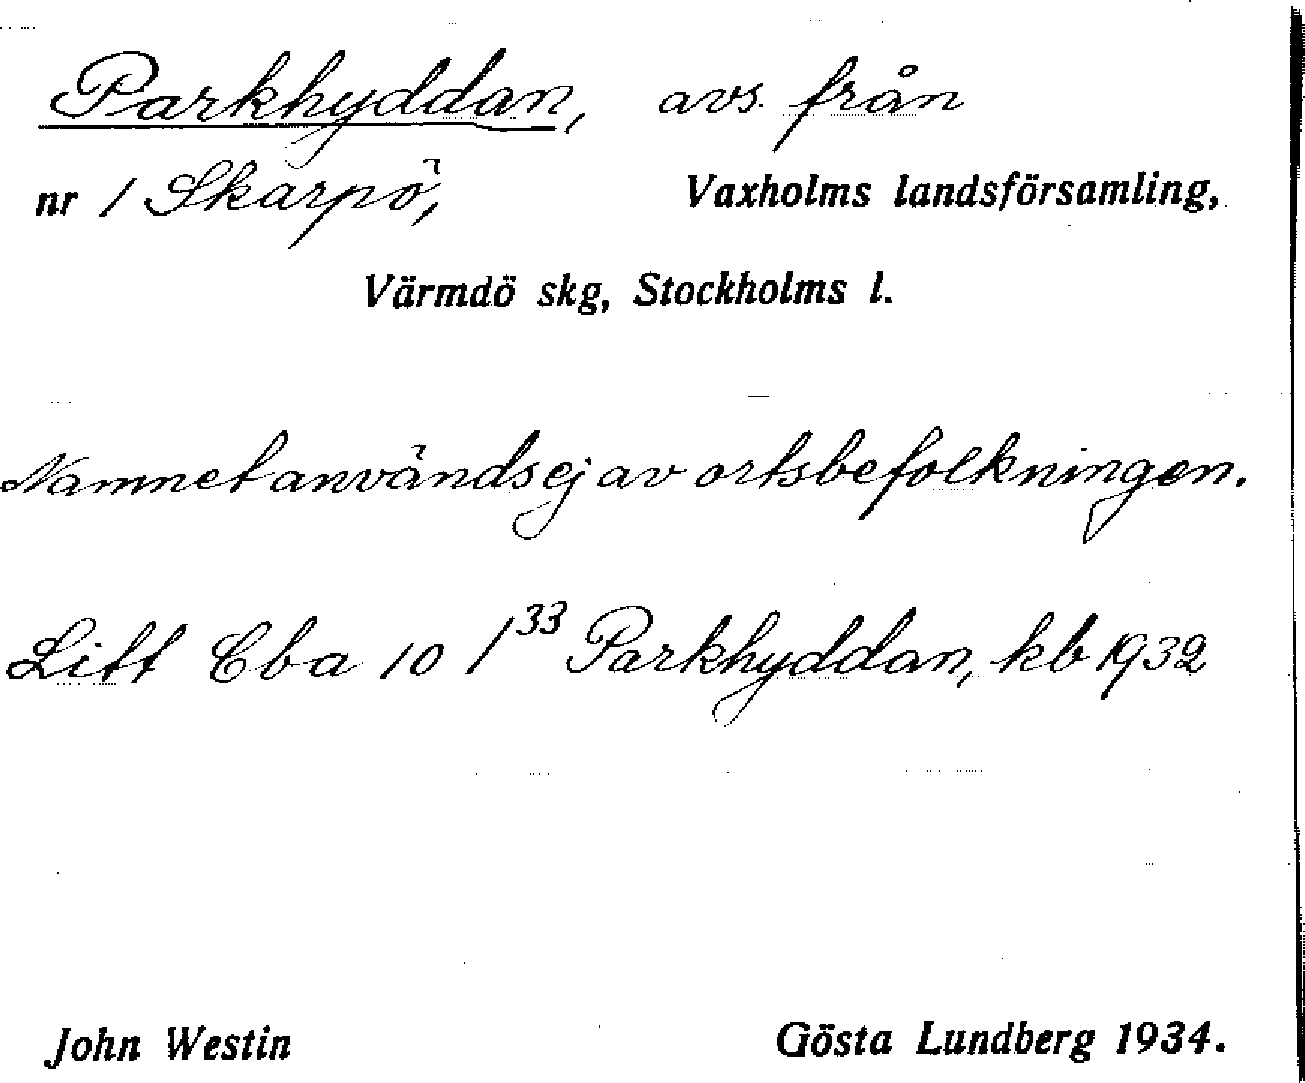 Parkhyddan, avs. från
nr 1 Skarpö, Vaxholms landsförsamling,
Värmdö skg, Stockholms l.
Namnet användsejav ortsbefolkningen.
Litt Cba 10 1³³ Parkhyddan, kb 1932
John Westin Gösta Lundberg 1934.